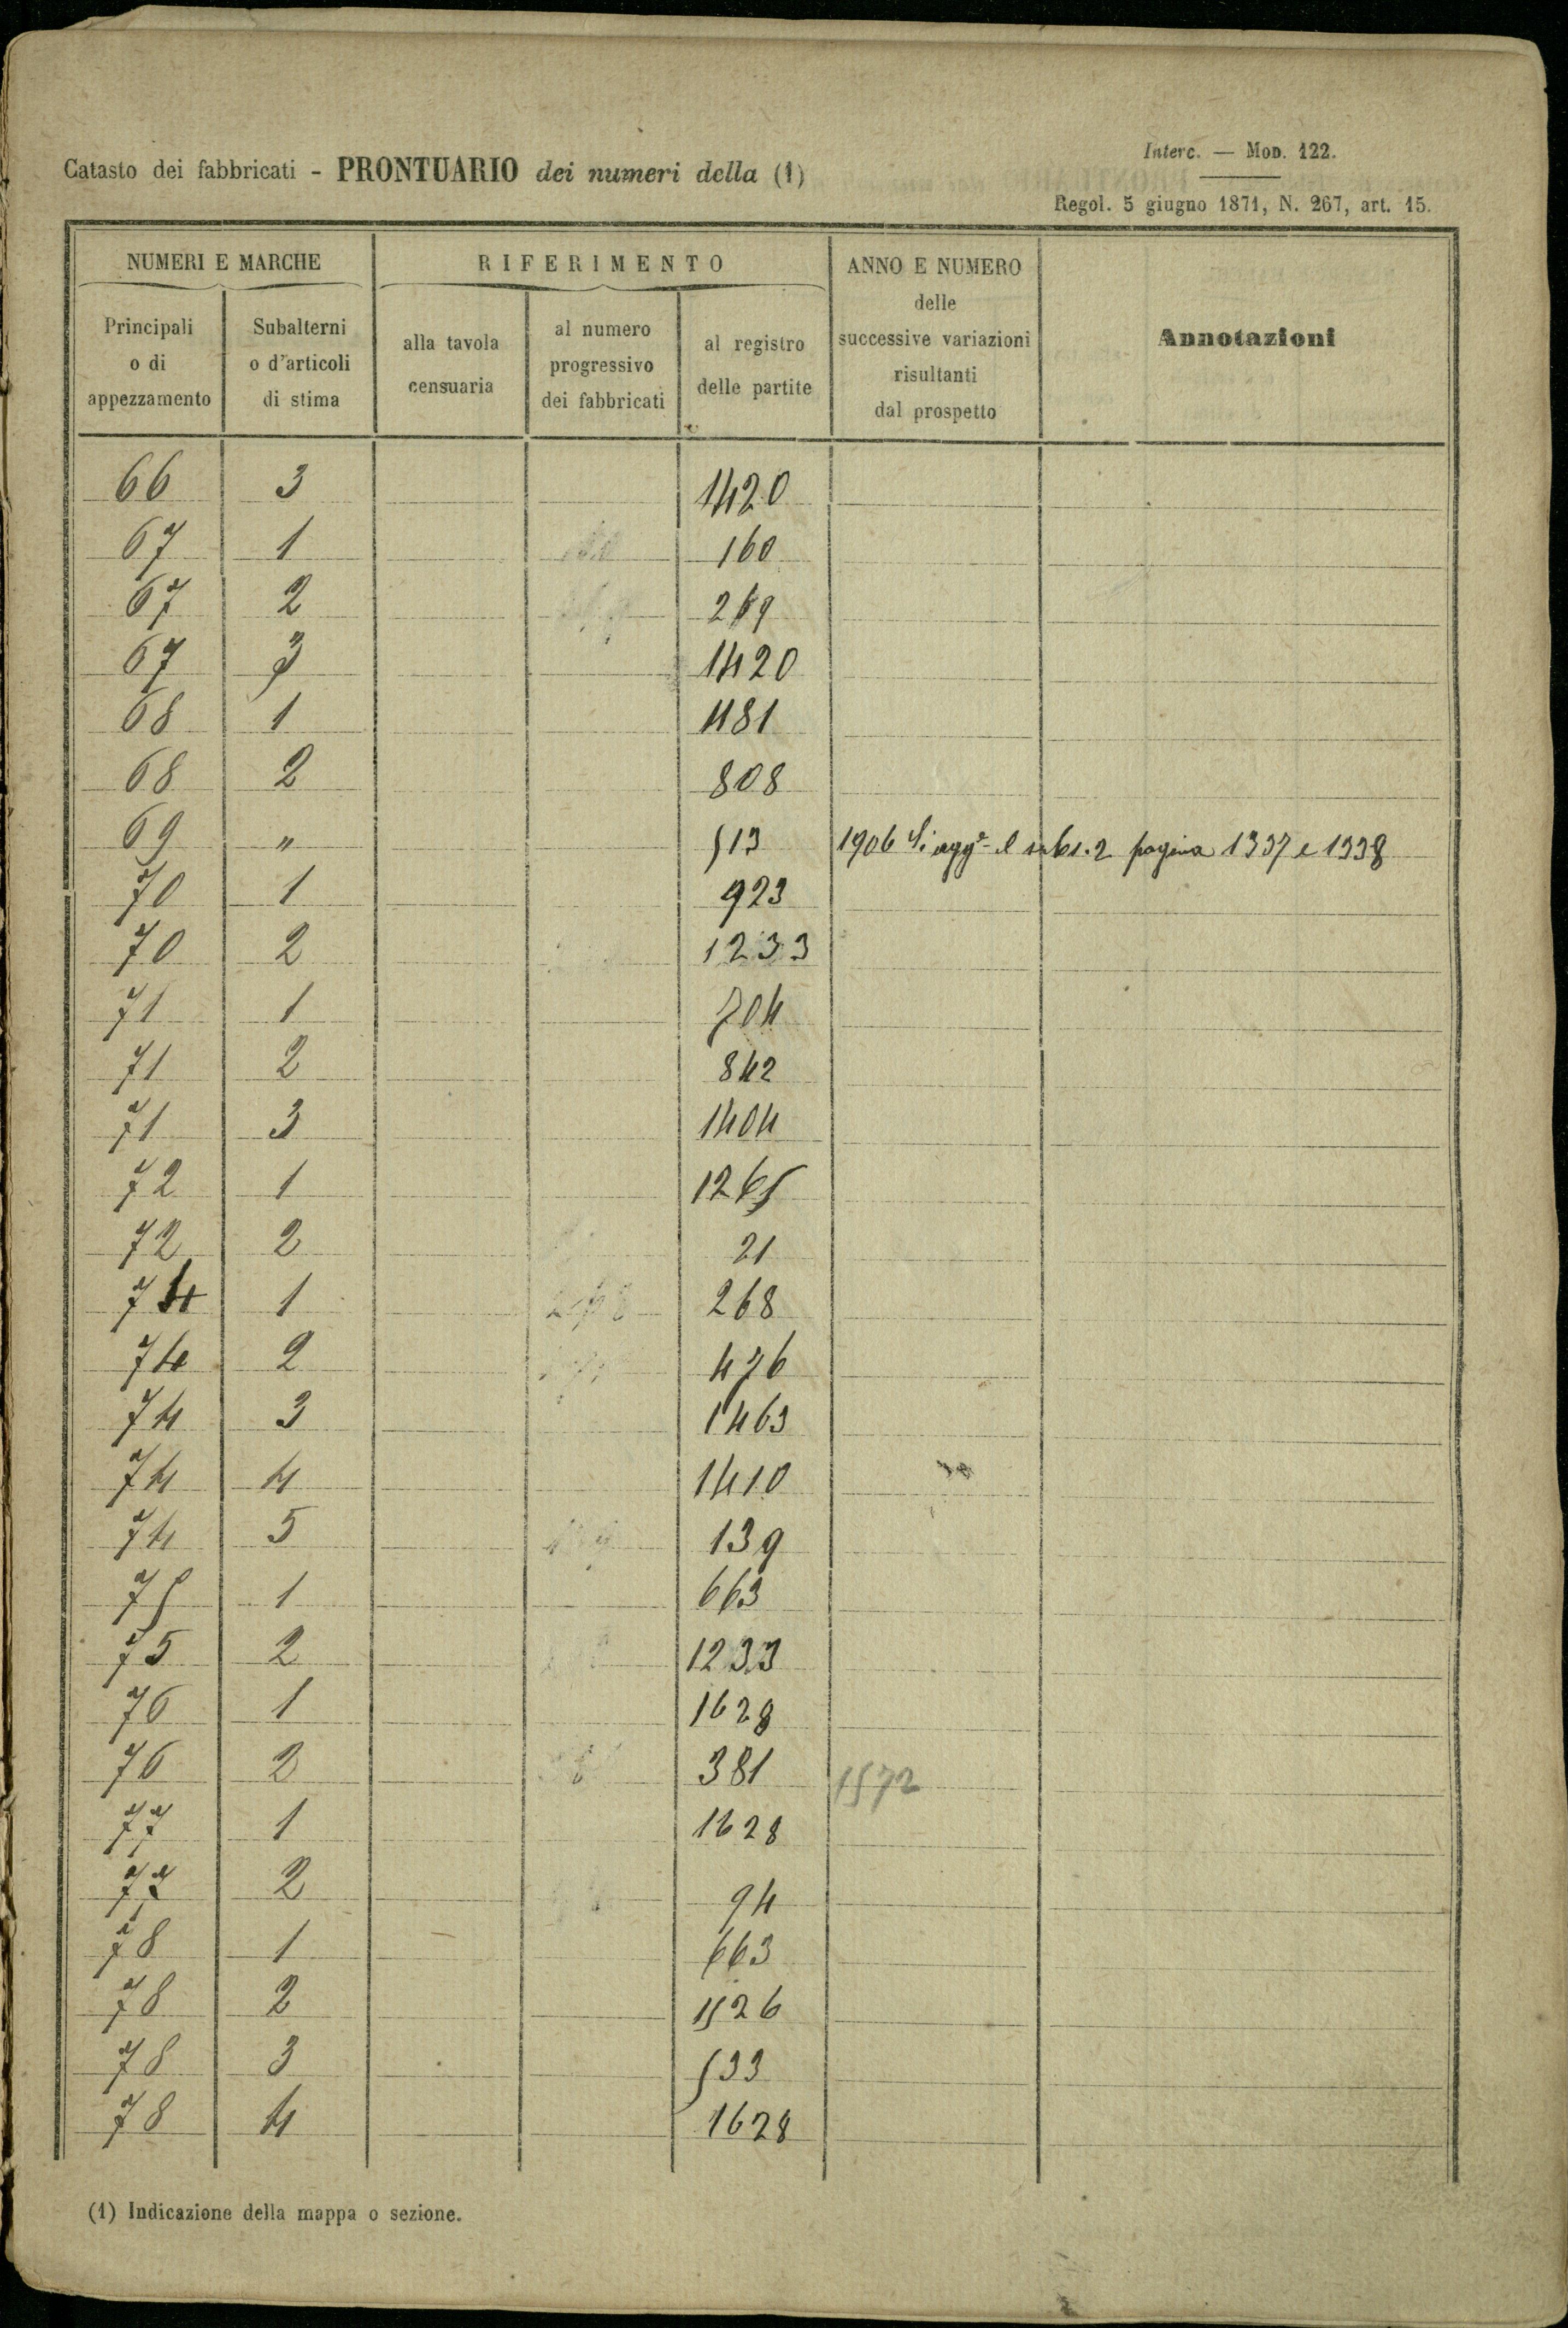 Interc. — Mod. 122.
Catasto dei fabbricati - PRONTUARIO dei numeri della (1)
Regol. 5 giugno 1871, N. 267, art. 15.
NUMERI E MARCHE RIFERIMENTO ANNO E NUMERO delle successive variazioni risultanti dal prospetto Annotazioni
Principali o di appezzamento Subalterni o d'articoli di stima alla tavola censuaria al numero progressivo dei fabbricati al registro delle partite
66 3 1420
67 1 160
67 2 269
67 3 1420
68 1 1181
68 2 808
69 " 513 1906 Si agg.e il sub. 2 pagina 1337 e 1338
70 1 923
70 2 1233
71 1 704
71 2 842
71 3 1404
72 1 1265
72 2 21
74 1 268
74 2 476
74 3 1463
74 4 1410
74 5 139
75 1 663
75 2 1233
76 1 1628
76 2 381 1572
77 1 1628
77 2 94
78 1 663
78 2 1526
78 3 533
78 4 1628
(1) Indicazione della mappa o sezione.